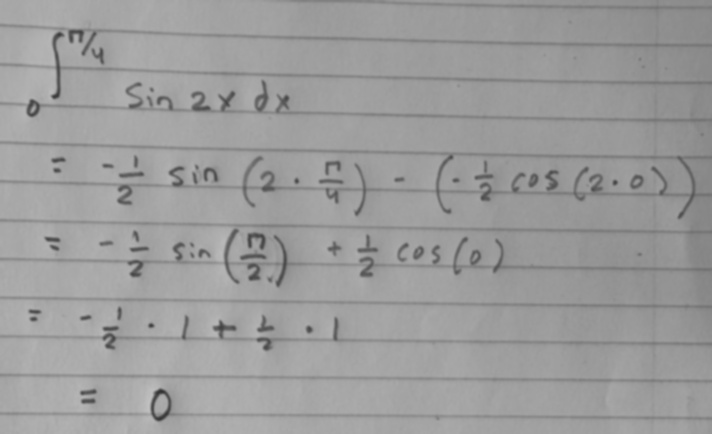 ∫₀^(π/4) sin 2x dx
= -1/2 sin (2 · π/4) - (-1/2 cos (2·0))
= -1/2 sin(π/2) + 1/2 cos(0)
= -1/2 · 1 + 1/2 · 1
= 0